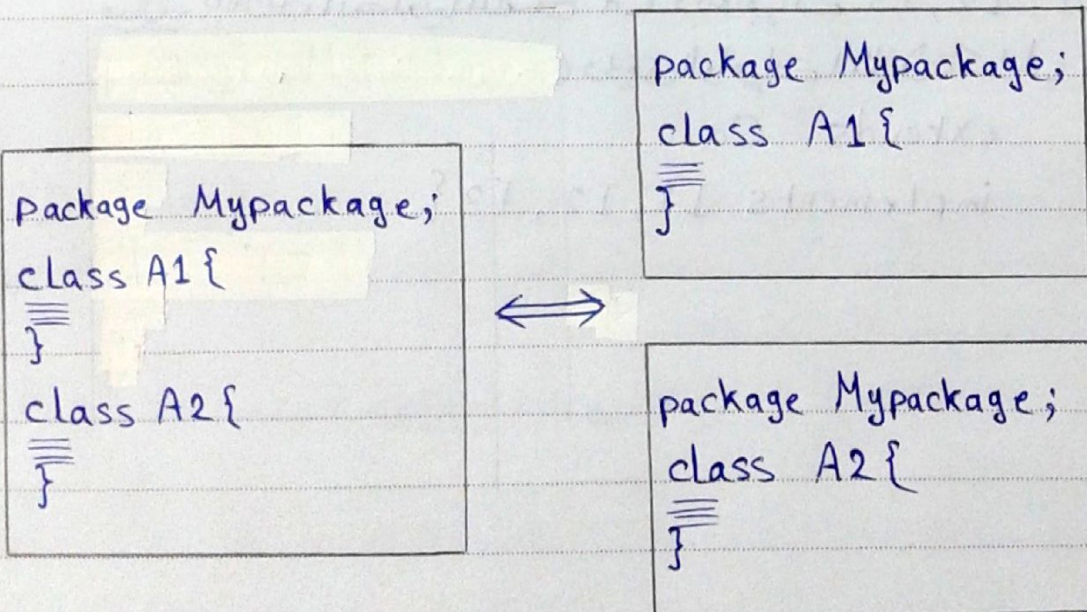 package Mypackage;
class A1 {
}
class A2 {
}
package Mypackage;
class A1 {
}
package Mypackage;
class A2 {
}